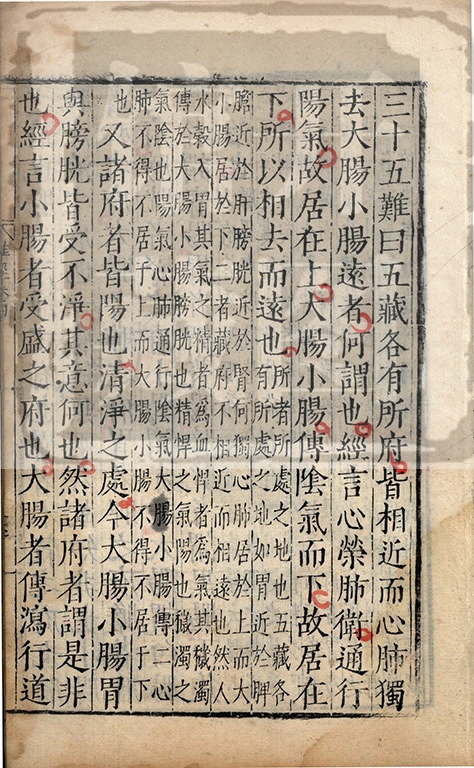 三十五難曰五藏各有所府皆相近而心肺獨
去大腸小腸遠者何謂也經言心榮肺衛通行
陽氣故居在上大腸小腸傳陰氣而下故居在
下所以相去而遠也所者所處之地也五藏各
有所處之地如胃近於脾
膽近於肝膀胱近於腎何獨心肺居於上而大
小腸居於下二者藏府不相近而相遠也然人
水穀入胃其氣之精者為血悍者為氣其穢濁
傳於大腸小腸膀胱也精悍之氣陽也穢濁之
氣陰也陽氣心肺通行陰氣大腸小腸傳二心
肺不得不居于上而大腸小腸不得不居于下
也
又諸府者皆陽也清淨之處今大腸小腸胃
與膀胱皆受不淨其意何也然諸府者謂是非
也經言小腸者受盛之府也大腸者傳瀉行道